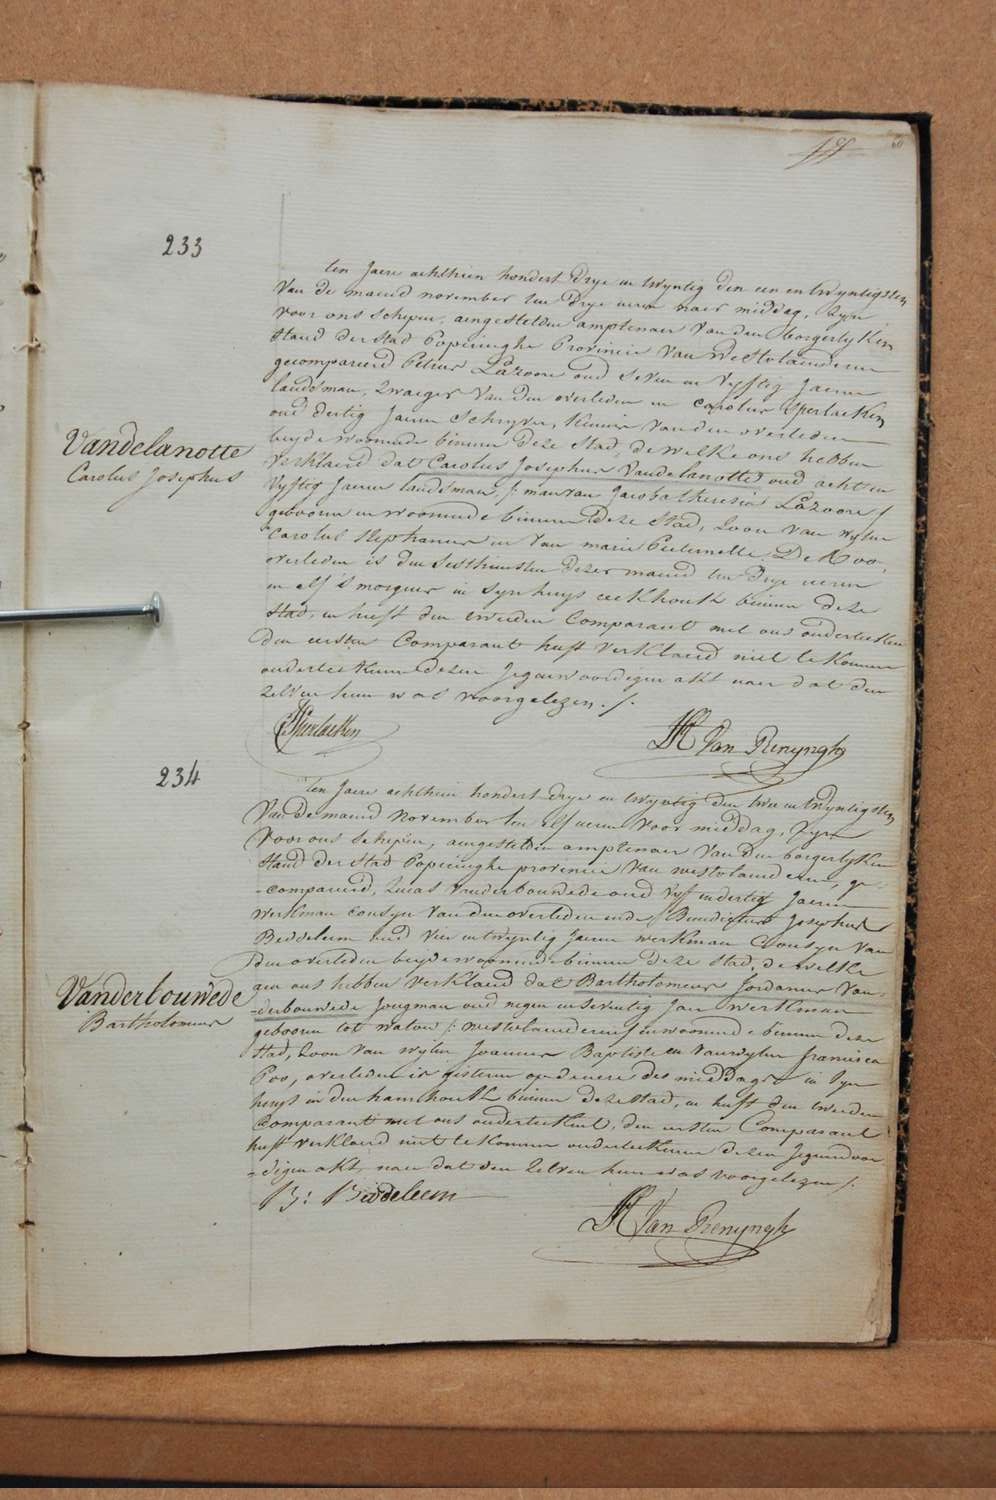 60
233
ten Jaere achthien hondert drye en twyntig den een en twyntigsten
Van de maend november ten drye uren naer middag, zyn
voor ons schepen, aengestelden amptenaer van den borgerlyken
stand der stad Popeринghe Provincie van Westvlaenderen
gecompareerd Petrus Lazoore oud seven en vyftig Jaeren
landsman, zwaeger van den overleden en Carolus Sperlaeken
oud dertig Jaeren Schryver, kennis van den overleden
beyde woonende binnen deze stad, de welke ons hebben
Vandelanotte
Carolus Josephus
verklaerd dat Carolus Josephus Vandelanotte oud acht en
vyftig Jaeren landsman, /: man van Jacoba theresia Lazoore /
geboren en woonende binnen deze stad, zoon van wylen
Carolus Stephanus en van marie Peeternelle De Roo,
overleden is den sesthiensten dezer maend ten drye uren
en elf 's morgens in syn huys eekhoutk binnen deze
stad, en heeft den tweeden Comparant met ons onderteekent
den eersten Comparant heeft verklaerd niet te konnen
onderteekenen dezen Jegenwoordigen akt naer dat den
zelven hun was voorgelezen ./.
CSperlaeken
JH Van Renynghe
234
ten Jaere achthien hondert drye en twyntig den twee en twyntigsten
Van de maend November ten elf uren voor middag, zyn
voor ons schepen, aengestelden amptenaer van den borgerlyken
stand der stad Popeринghe provincie van westvlaenderen, ge-
-compareerd, Lucas Vanderbouwede oud vyf en dertig Jaeren
werkman cousyn van den overleden ende Benedictus Josephus
Beddeleem oud vier en twyntig Jaeren werkman Cousyn van
den overleden beyde woonende binnen deze stad, de welke
Vanderbouwede
Bartholomeus
aen ons hebben verklaerd dat Bartholomeus Jordanus Van-
-derbouwede Jongman oud negen en seventig Jaer werkman
geboren tot watou /: westvlaenderen / en woonende binnen deze
stad, zoon van wylen Joannes Baptiste en van wylen francisca
Poo, overleden is gisteren op d'uere des middags in syn
huys in den hamhoutk binnen deze stad, en heeft den tweeden
Comparant met ons onderteekent, den eersten Comparant
heeft verklaerd niet te konnen onderteekenen dezen Jegenwoor
-digen akt, naer dat den zelven hun was voorgelezen /.
B: Beddeleem
JH Van Renynghe